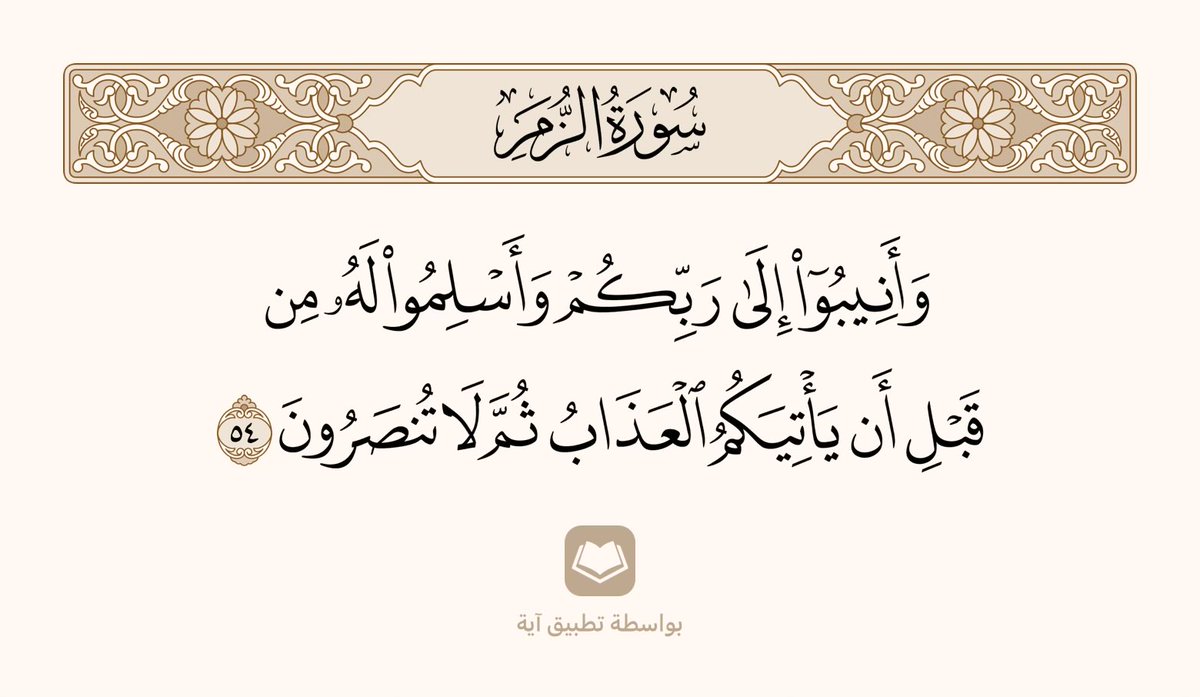 سُورَةُ الزُّمَرِ
وَأَنِيبُوٓا۟ إِلَىٰ رَبِّكُمْ وَأَسْلِمُوا۟ لَهُۥ مِن
قَبْلِ أَن يَأْتِيَكُمُ ٱلْعَذَابُ ثُمَّ لَا تُنصَرُونَ ٥٤
بواسطة تطبيق آية